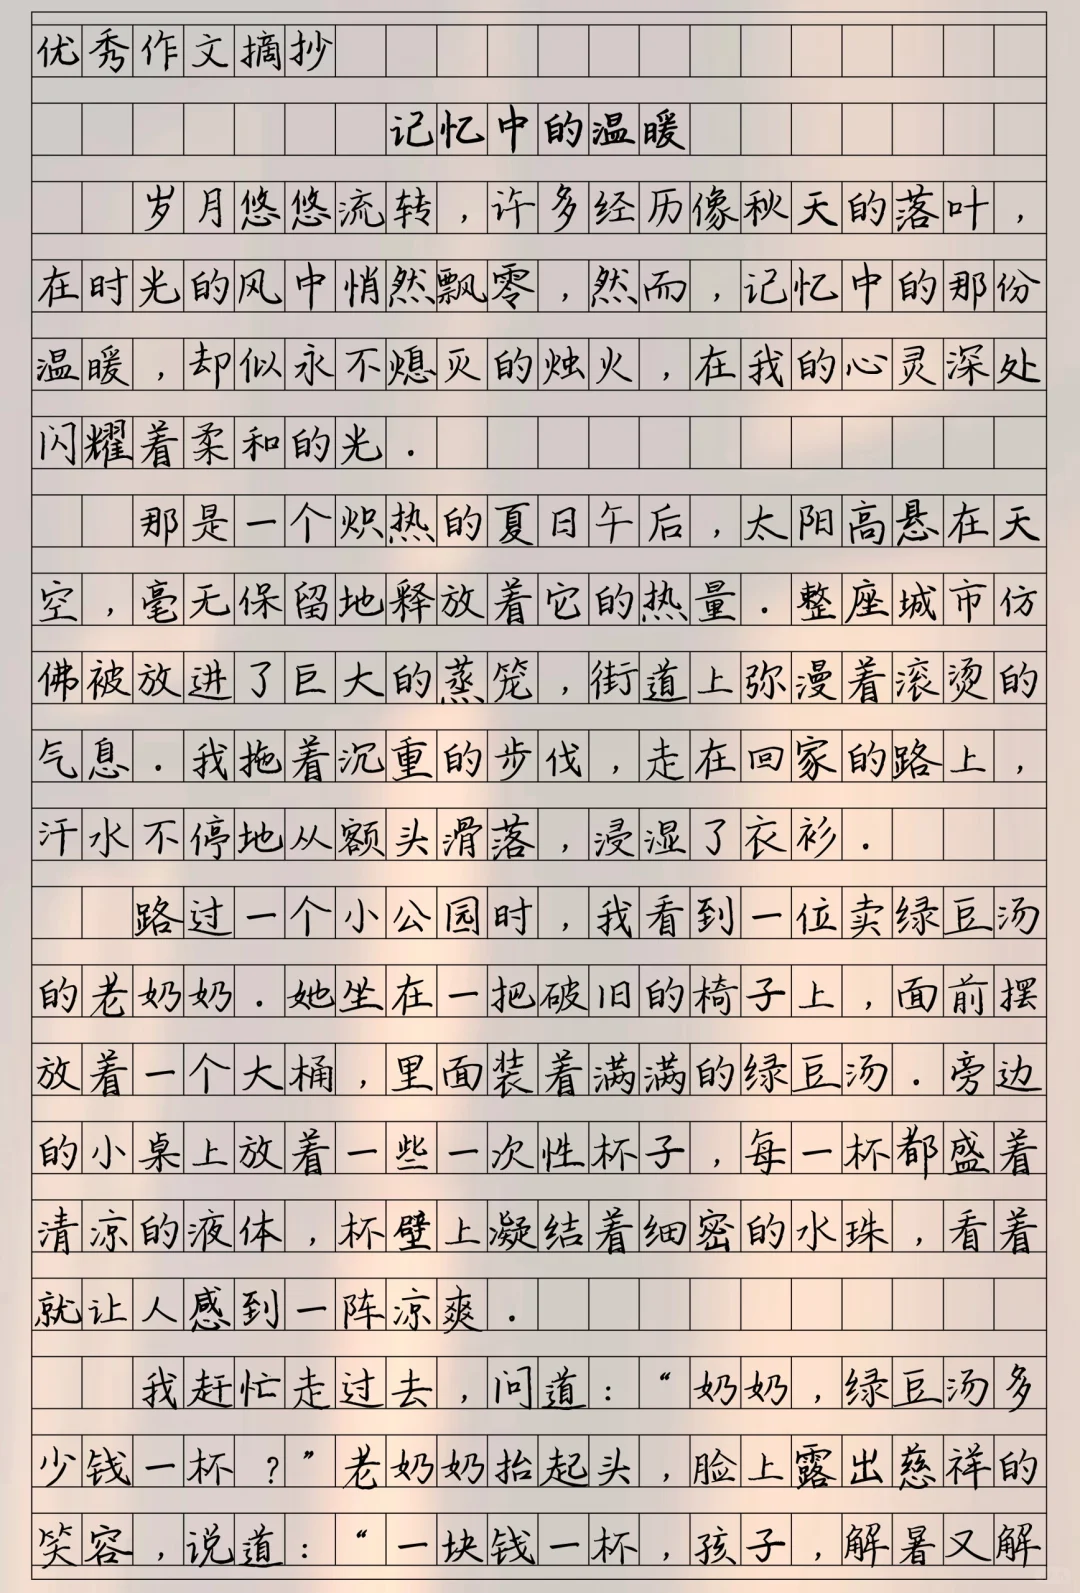 优秀作文摘抄
记忆中的温暖
岁月悠悠流转，许多经历像秋天的落叶，
在时光的风中悄然飘零，然而，记忆中的那份
温暖，却似永不熄灭的烛火，在我的心灵深处
闪耀着柔和的光．
那是一个炽热的夏日午后，太阳高悬在天
空，毫无保留地释放着它的热量．整座城市仿
佛被放进了巨大的蒸笼，街道上弥漫着滚烫的
气息．我拖着沉重的步伐，走在回家的路上，
汗水不停地从额头滑落，浸湿了衣衫．
路过一个小公园时，我看到一位卖绿豆汤
的老奶奶．她坐在一把破旧的椅子上，面前摆
放着一个大桶，里面装着满满的绿豆汤．旁边
的小桌上放着一些一次性杯子，每一杯都盛着
清凉的液体，杯壁上凝结着细密的水珠，看着
就让人感到一阵凉爽．
我赶忙走过去，问道：“奶奶，绿豆汤多
少钱一杯？”老奶奶抬起头，脸上露出慈祥的
笑容，说道：“一块钱一杯，孩子，解暑又解